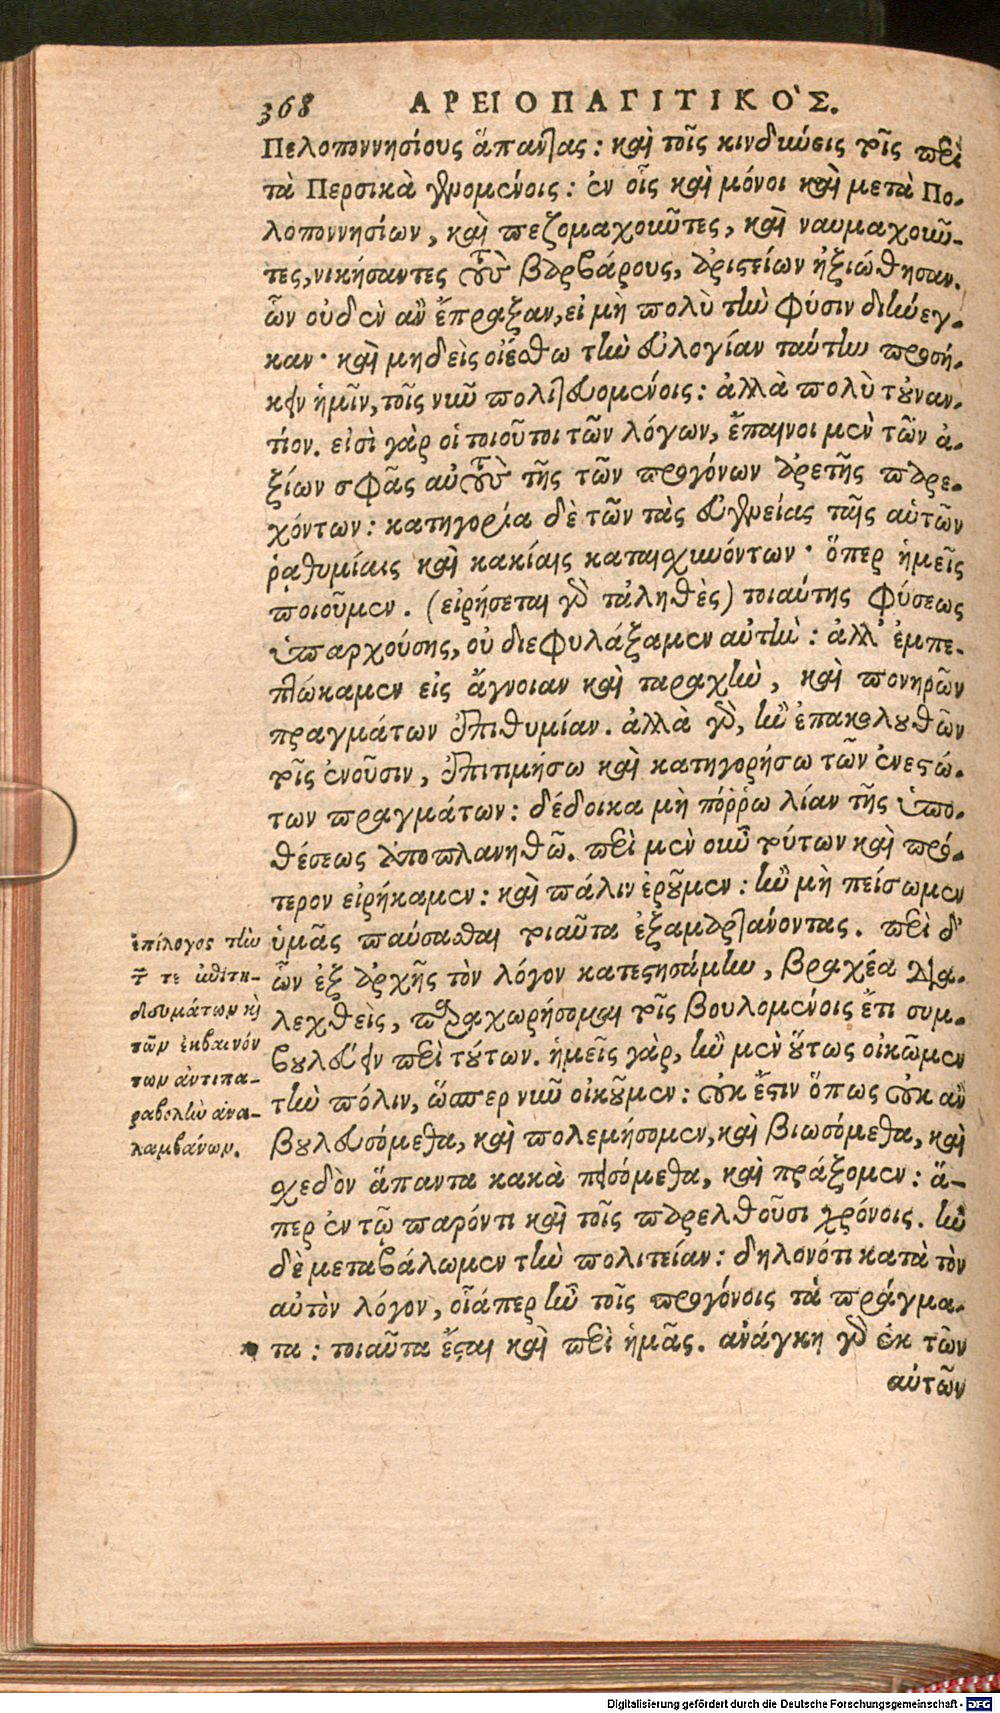 368 ΑΡΕΙΟΠΑΓΙΤΙΚΟ`Σ.
Πελοποννησίους ἅπαντας : καὶ τοῖς κινδύνοις τοῖς περὶ
τὰ Περσικὰ γενομένοις : ἐν οἷς καὶ μόνοι καὶ μετὰ Πο-
λοποννησίων, καὶ πεζομαχοῦντες, καὶ ναυμαχοῦν-
τες, νικήσαντες τοὺς βαρβάρους, ἀριστείων ἠξιώθησαν.
ὧν οὐδὲν ἂν ἔπραξαν, εἰ μὴ πολὺ τὴν φύσιν διήνεγ-
καν · καὶ μηδεὶς οἰέσθω τὴν εὐλογίαν ταύτην προσή-
κειν ἡμῖν, τοῖς νῦν πολιτευομένοις : ἀλλὰ πολὺ τοὐναν-
τίον. εἰσὶ γὰρ οἱ τοιοῦτοι τῶν λόγων, ἔπαινοι μὲν τῶν ἀ-
ξίων σφᾶς αὐτοὺς τῆς τῶν προγόνων ἀρετῆς παρε-
χόντων : κατηγορία δὲ τῶν τὰς εὐγενείας ταῖς αὑτῶν
ῥᾳθυμίαις καὶ κακίαις καταισχυνόντων · ὅπερ ἡμεῖς
ποιοῦμεν. (εἰρήσεται γὰρ τἀληθὲς) τοιαύτης φύσεως
ὑπαρχούσης, οὐ διεφυλάξαμεν αὐτὴν : ἀλλ' ἐμπε-
πτώκαμεν εἰς ἄγνοιαν καὶ ταραχὴν, καὶ πονηρῶν
πραγμάτων ἐπιθυμίαν. ἀλλὰ γὰρ, ἢν ἐπακολουθῶν
τοῖς ἐνοῦσιν, ἐπιτιμήσω καὶ κατηγορήσω τῶν ἐνεστώ-
των πραγμάτων : δέδοικα μὴ πόῤῥω λίαν τῆς ὑπο-
θέσεως ἀποπλανηθῶ. περὶ μὲν οὖν τούτων καὶ πρό-
τερον εἰρήκαμεν : καὶ πάλιν ἐροῦμεν : ἢν μὴ πείσωμεν
ὑμᾶς παύσασθαι τοιαῦτα ἐξαμαρτάνοντας. περὶ δ'
ὧν ἐξ ἀρχῆς τὸν λόγον κατεστησάμην, βραχέα δια-
λεχθεὶς, παραχωρήσομαι τοῖς βουλομένοις ἔτι συμ-
βουλεύειν περὶ τούτων. ἡμεῖς γὰρ, ἢν μὲν οὕτως οἰκῶμεν
τὴν πόλιν, ὥσπερ νῦν οἰκοῦμεν : οὐκ ἔστιν ὅπως οὐκ ἂν
βουλευσόμεθα, καὶ πολεμήσομεν, καὶ βιωσόμεθα, καὶ
σχεδὸν ἅπαντα κακὰ πεισόμεθα, καὶ πράξομεν : ἅ-
περ ἐν τῷ παρόντι καὶ τοῖς παρελθοῦσι χρόνοις. ἢν
δὲ μεταβάλωμεν τὴν πολιτείαν : δηλονότι κατὰ τὸν
αὐτὸν λόγον, οἷάπερ ἦν τοῖς προγόνοις τὰ πράγμα-
τα : τοιαῦτα ἔσται καὶ περὶ ἡμᾶς. ἀνάγκη γὰρ ἐκ τῶν
αὐτῶν
ἐπίλογος τὴν
τῶν τε ἐπιτη-
δευμάτων καὶ
τῶν ἐκβαινόν
των ἀντιπα-
ραβολὴν ἀνα-
λαμβάνων.
Digitalisierung gefördert durch die Deutsche Forschungsgemeinschaft - DFG